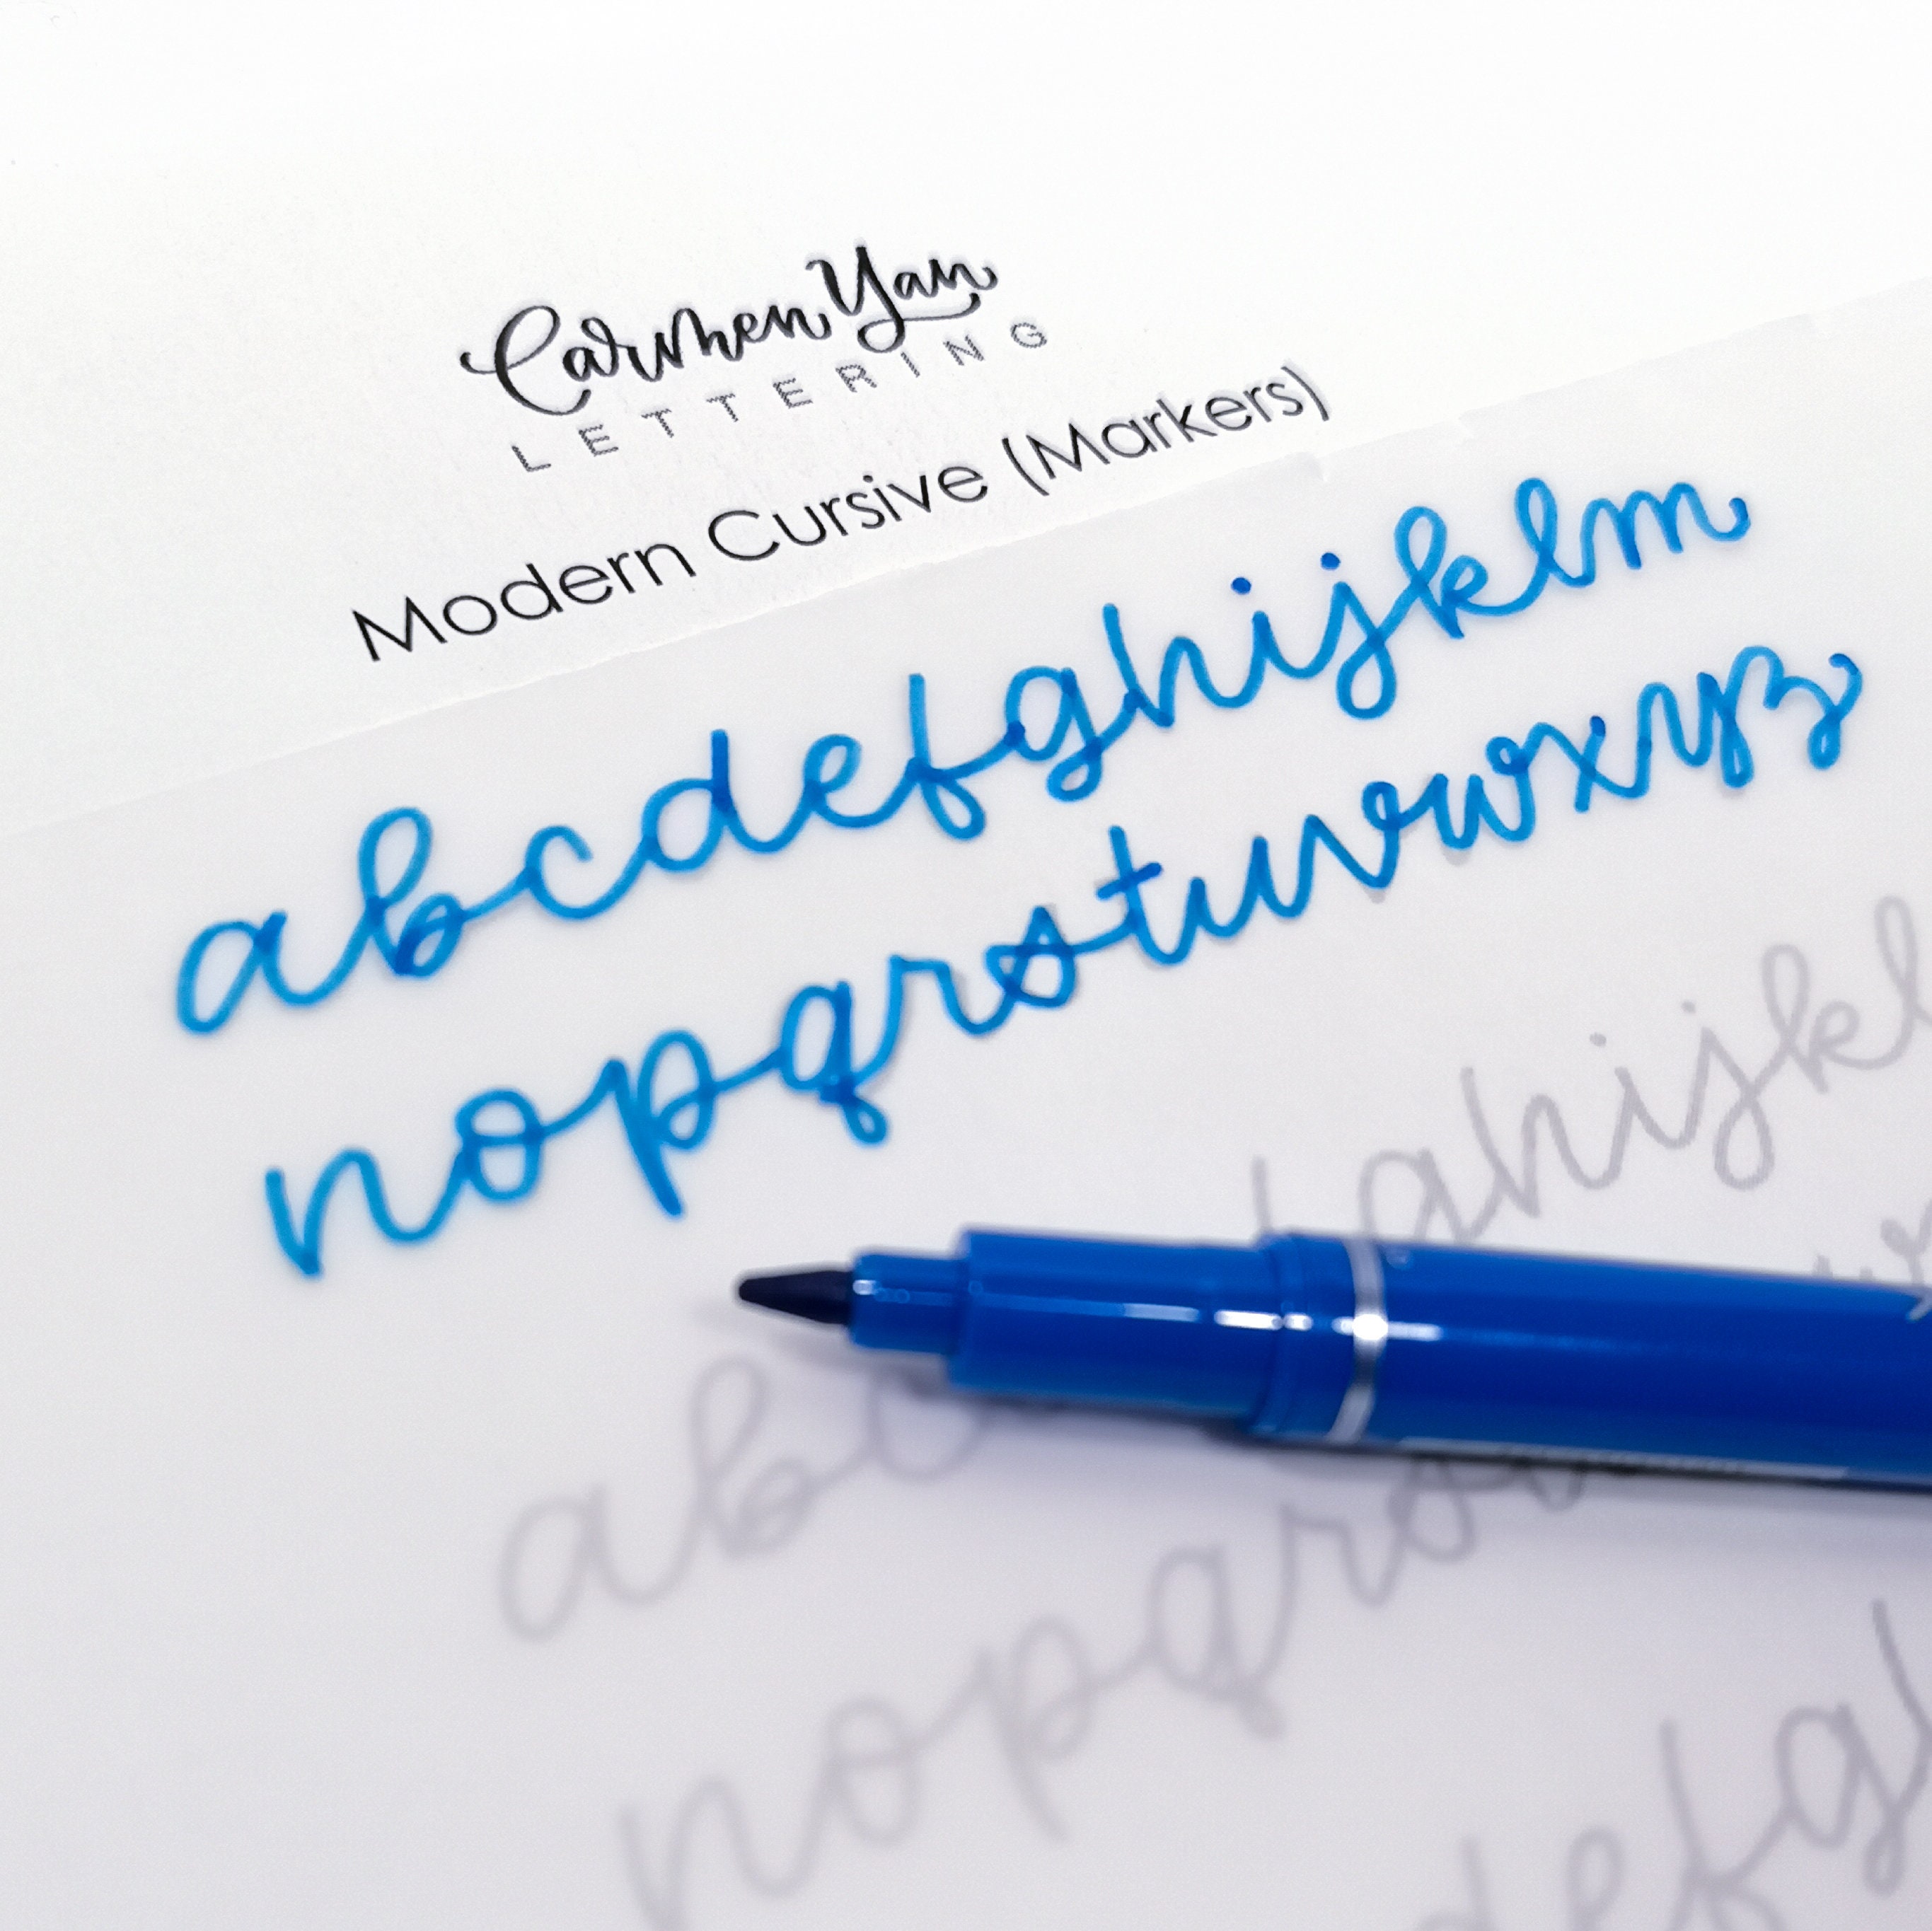 Carmen Yan
LETTERING
Modern Cursive (Markers)
abcdefghijklm
nopqrstuvwxyz
ghijkl
abc
nopqrs
defgh